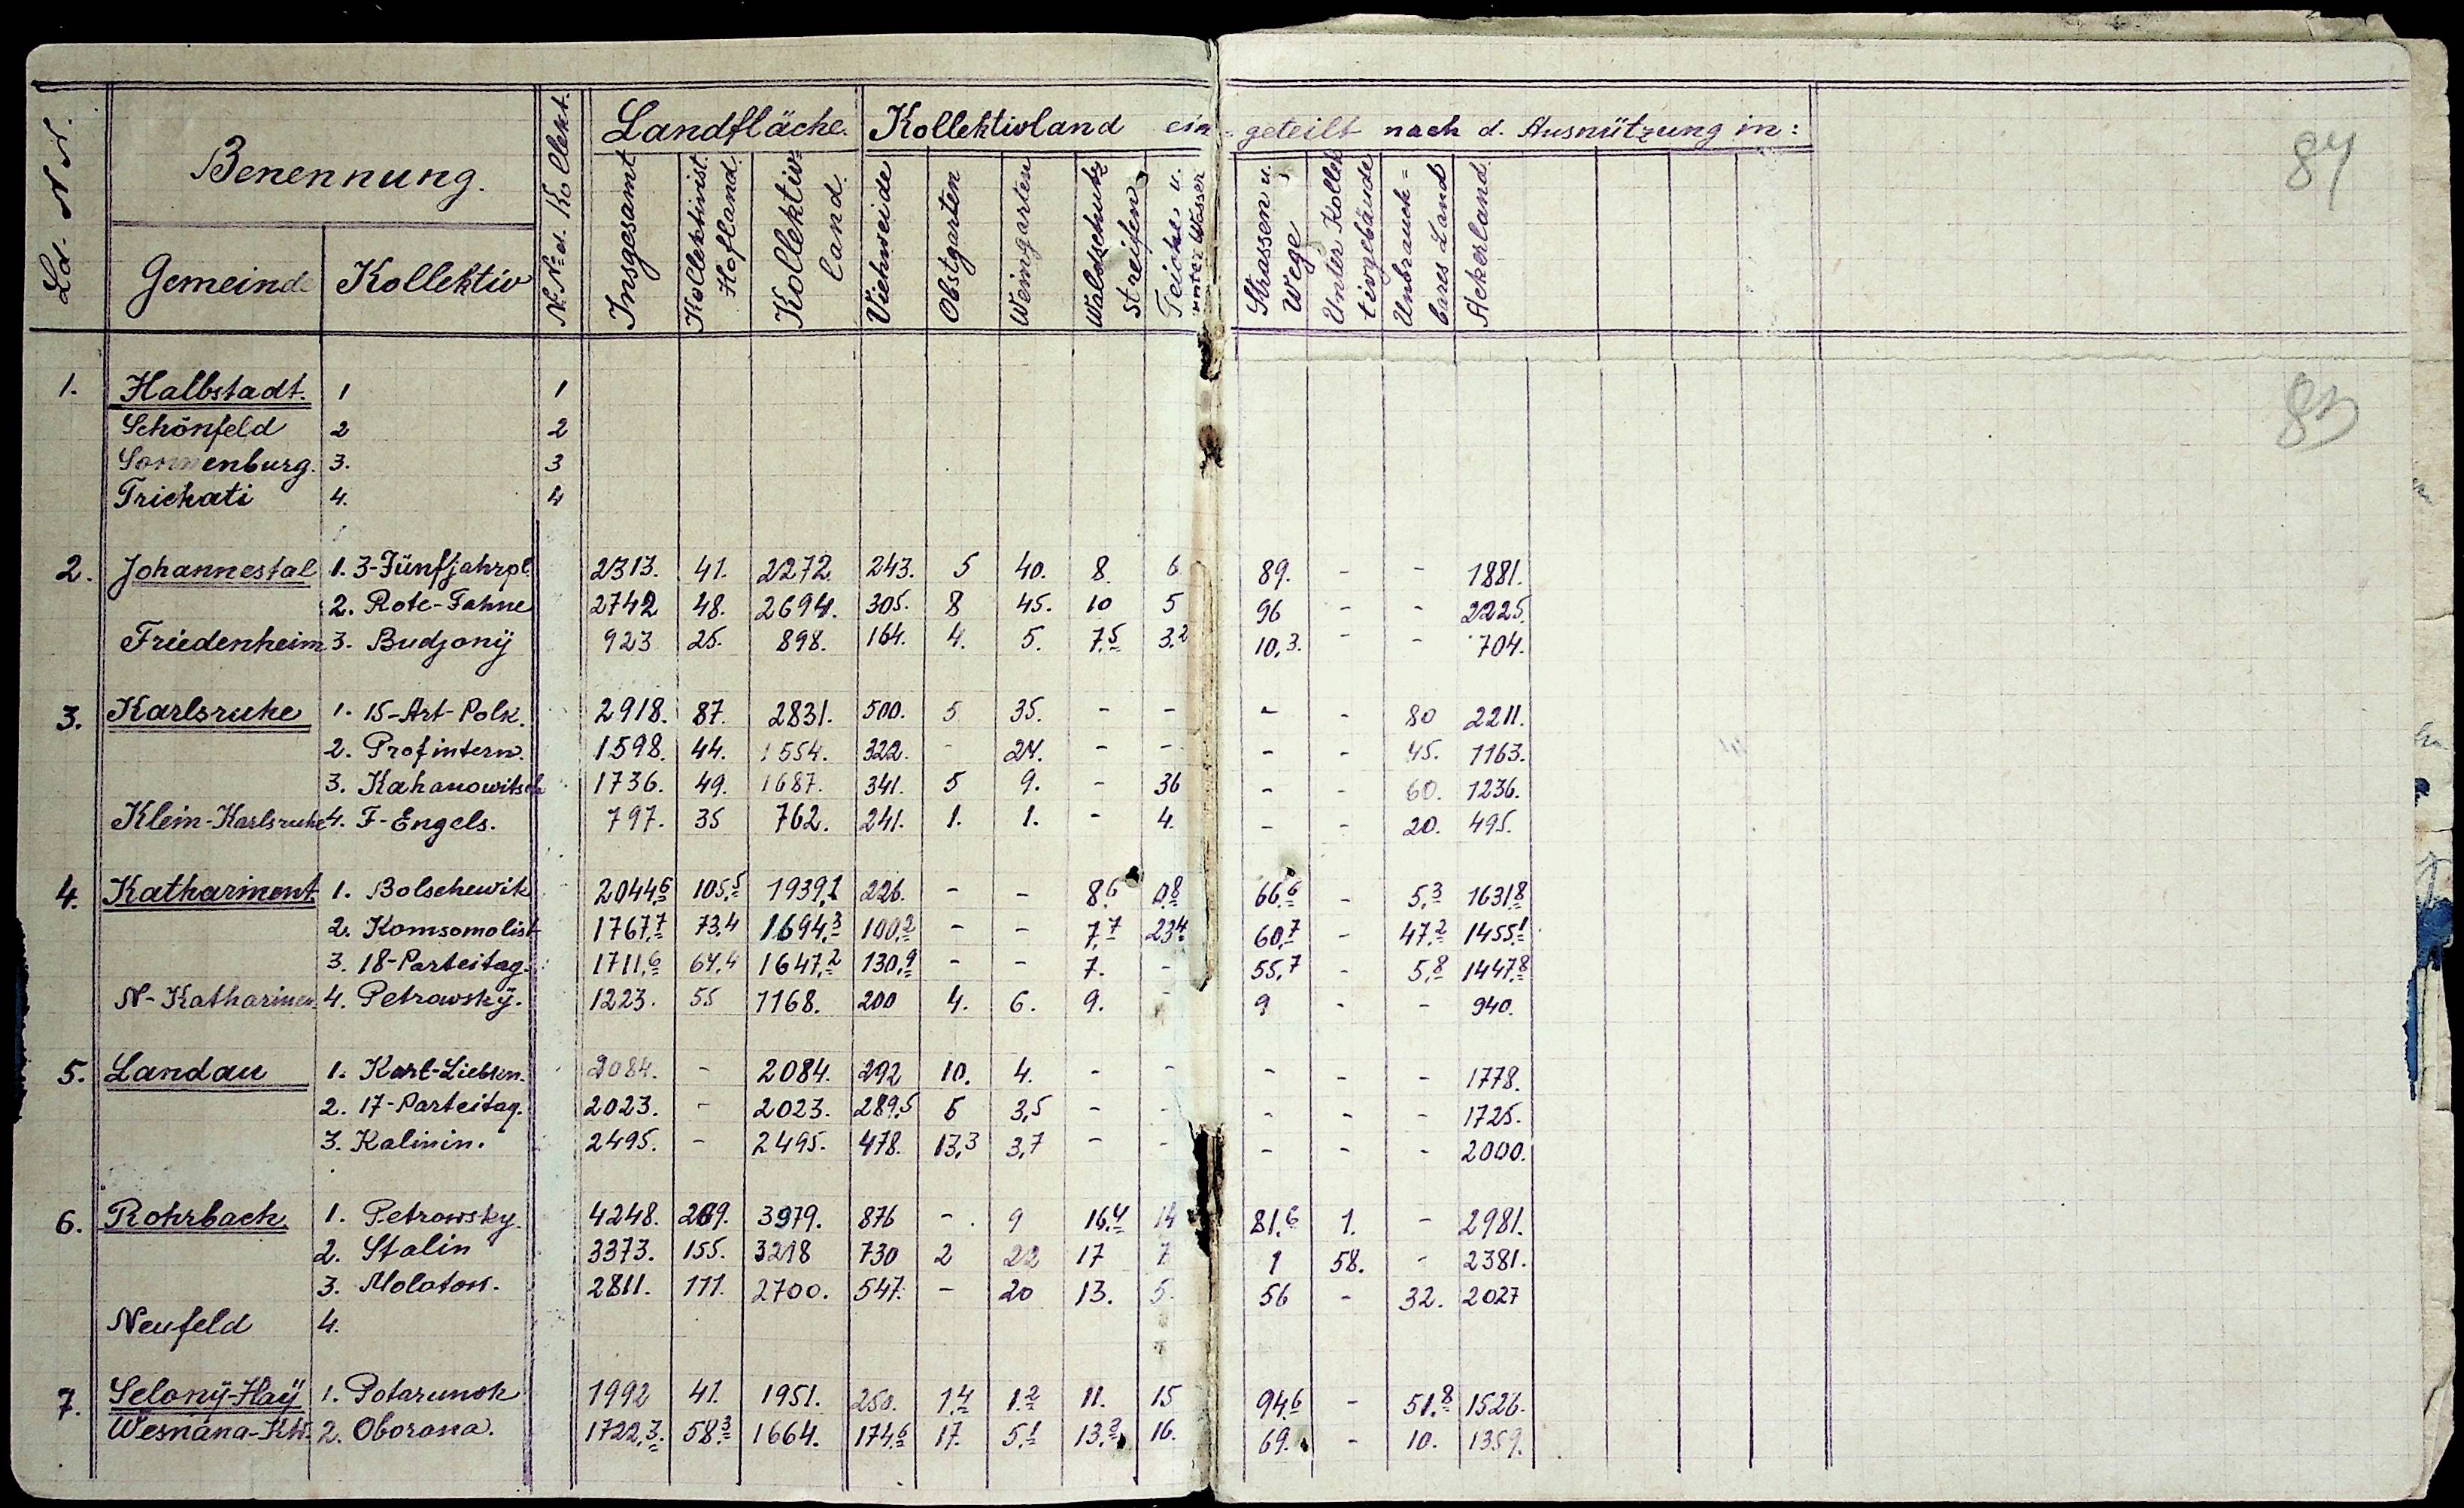 Ld. N N. Benennung. N. N. d. Kollekt. Landfläche. Kollektivland ein- geteilt nach d. Ausnützung in: 84
Gemeinde Kollektiv Insgesamt Kollektivist. Hofland. Kollektiv= land. Viehweide Obstgarten Weingarten Waldschutz streifen Teiche u. unter Wasser Strassen u. Wege Unter Kollek tivgebäude Unbrauch= bares Land Ackerland.
83
1. Halbstadt. 1 1
Schönfeld 2 2
Sonnenburg. 3. 3
Trichati 4. 4
2. Johannestal 1. 3-Fünfjahrpl. 2313. 41. 2272 243. 5 40. 8. 6 89. - - 1881.
2. Rote-Fahne 2742 48. 2694. 305. 8 45. 10 5 96 - - 2225.
Friedenheim 3. Budjonÿ 923 25. 898. 164. 4. 5. 7,5 3,2 10,3. - - 704.
3. Karlsruhe 1. 15-Art-Polk. 2918. 87. 2831. 500. 5 35. - - - - 80 2211.
2. Profintern. 1598. 44. 1554. 322. - 24. - - - - 45. 1163.
3. Kahanowitsch 1736. 49. 1687. 341. 5 9. - 36 - - 60. 1236.
Klein-Karlsruhe 4. F-Engels. 797. 35 762. 241. 1. 1. - 4. - - 20. 495.
4. Katharinent. 1. Bolschewik 2044,6 105,5 1939,1 226. - - 8,6 0,8 66,6 - 5,3 1631,8
2. Komsomolist 1767,7 73,4 1694,3 100,2 - - 7,7 23,4 60,7 - 47,2 1455,1
3. 18-Parteitag. 1711,6 64,4 1647,2 130,9 - - 7. - 55,7 - 5,8 1447,8
N-Katharinen. 4. Petrowskÿ. 1223. 55 1168. 200 4. 6. 9. - 9 - - 940.
5. Landau 1. Karl-Liebkn. 2084. - 2084. 292 10. 4. - - - - - 1778.
2. 17-Parteitag. 2023. - 2023. 289,5 5 3,5 - - - - - 1725.
3. Kalinin. 2495. - 2495. 478. 13,3 3,7 - - - - - 2000.
6. Rohrbach. 1. Petrowsky. 4248. 269. 3979. 876 - 9 16,4 14 81,6 1. - 2981.
2. Stalin 3373. 155. 3218 730 2 22 17 7 1 58. - 2381.
3. Molotow. 2811. 111. 2700. 547. - 20 13. 5. 56 - 32. 2027
Neufeld 4.
7. Selonÿ-Haÿ 1. Potarunok 1992 41. 1951. 250. 1,4 1,2 11. 15 94,6 - 51,8 1526.
Wesnäna-Kw. 2. Oborona. 1722,3. 58,3 1664. 174,6 17. 5,1 13,3 16. 69. - 10. 1359.